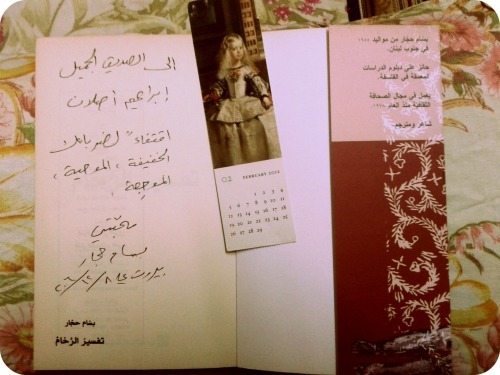 إلى الصديق الجميل
إبراهيم أصلان
اقتفاءً لضرباتك
الخفيفة، الموحية،
الموجعة،
محبّتي
بسام حجار
بيروت في
بسّام حجّار
تفسير الرّخام
02 FEBRUARY 2012
1 2 3 4
5 6 7 8 9 10 11
12 13 14 15 16 17 18
19 20 21 22 23 24 25
26 27 28 29
بسّام حجّار من مواليد ١٩٥٥
في جنوب لبنان.
حائز على دبلوم الدراسات
المعمقة في الفلسفة.
يعمل في مجال الصحافة
الثقافية منذ العام
شاعر ومترجم.